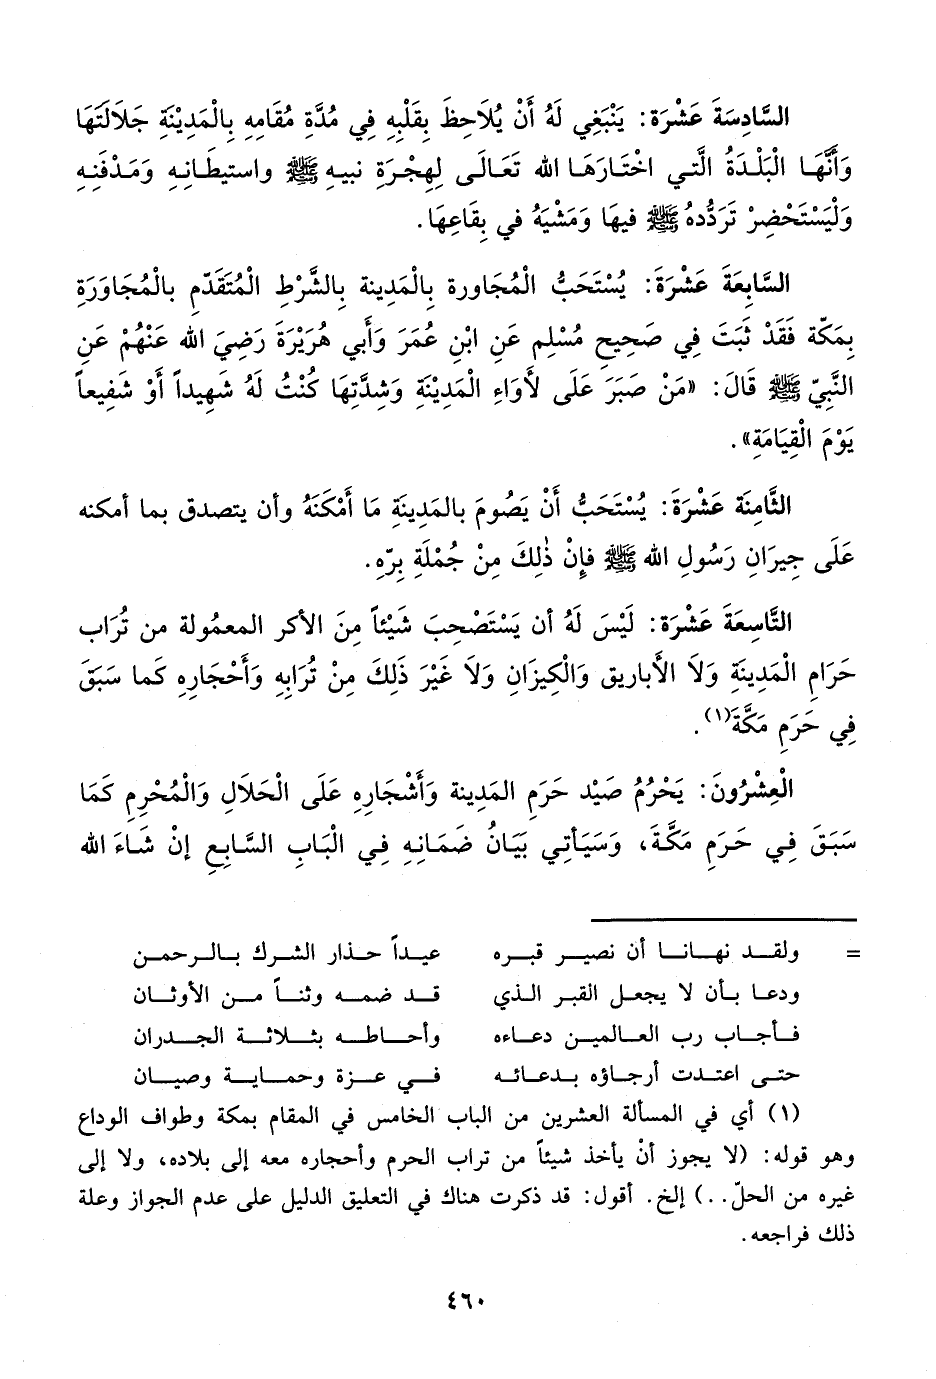 السَّادِسَةَ عَشْرَةَ: يَنْبَغِي لَهُ أَنْ يُلَاحِظَ بِقَلْبِهِ فِي مُدَّةِ مُقَامِهِ بِالْمَدِيْنَةِ جَلَالَتَهَا
وَأَنَّهَا الْبَلْدَةُ الَّتي اخْتَارَهَا الله تَعَالَى لِهِجْرَةِ نبيه ﷺ واستيطَانِهِ وَمَدْفَنِهِ
وَلْيَسْتَحْضِرْ تَرَدُّدهُ ﷺ فيهَا وَمَشْيَهُ في بِقَاعِهَا.
السَّابِعَةَ عَشْرَةَ: يُسْتَحَبُّ الْمُجاورة بِالْمَدينة بِالشَّرْطِ الْمُتَقَدّم بِالْمُجَاوَرَةِ
بِمَكّة فَقَدْ ثَبَتَ فِي صَحِيحِ مُسْلِم عَنِ ابْنِ عُمَرَ وَأَبي هُرَيْرَةَ رَضِيَ الله عَنْهُمْ عَنِ
النَّبِيّ ﷺ قَالَ: «مَنْ صَبَرَ عَلَى لأوَاءِ الْمَدِيْنَةِ وَشِدَّتِهَا كُنْتُ لَهُ شَهِيداً أوْ شَفِيعاً
يَوْمَ الْقِيَامَةِ».
الثَّامِنَة عَشْرَةَ: يُسْتَحَبُّ أَنْ يَصُومَ بالمَدِينَةِ مَا أَمْكَنَهُ وأن يتصدق بما أمكنه
عَلَى جِيرَانِ رَسُولِ الله ﷺ فإِنْ ذٰلِكَ مِنْ جُمْلَةِ بِرّهِ.
التَّاسِعَةَ عَشْرَة: لَيْسَ لَهُ أن يَسْتَصْحِبَ شَيْئاً مِنَ الأكر المعمُولة من تُرَاب
حَرَامِ الْمَدِينَةِ وَلاَ الأباريق وَالْكِيزَانِ وَلاَ غَيْرَ ذَلِكَ مِنْ تُرَابِهِ وَأَحْجَارِهِ كَما سَبَقَ
فِي حَرَمِ مَكَّةَ(١).
الْعِشْرُونَ: يَحْرُمُ صَيْد حَرَمِ المَدِينة وَأَشْجَارِهِ عَلَى الْحَلَالِ وَالْمُحْرِمِ كَمَا
سَبَقَ فِي حَرَمِ مَكَّةَ، وَسَيَأتِي بَيَانُ ضَمَانِهِ فِي الْبَابِ السَّابِعِ إنْ شَاءَ الله
= ولقد نهانا أن نصير قبره عيداً حذار الشرك بالرحمن
ودعا بأن لا يجعل القبر الذي قد ضمه وثناً من الأوثان
فأجاب رب العالمين دعاءه وأحاطه بثلاثة الجدران
حتى اعتدت أرجاؤه بدعائه في عزة وحماية وصيان
(١) أي في المسألة العشرين من الباب الخامس في المقام بمكة وطواف الوداع
وهو قوله: (لا يجوز أنْ يأخذ شيئاً من تراب الحرم وأحجاره معه إلى بلاده، ولا إلى
غيره من الحلّ..) إلخ. أقول: قد ذكرت هناك في التعليق الدليل على عدم الجواز وعلة
ذلك فراجعه.
٤٦٠